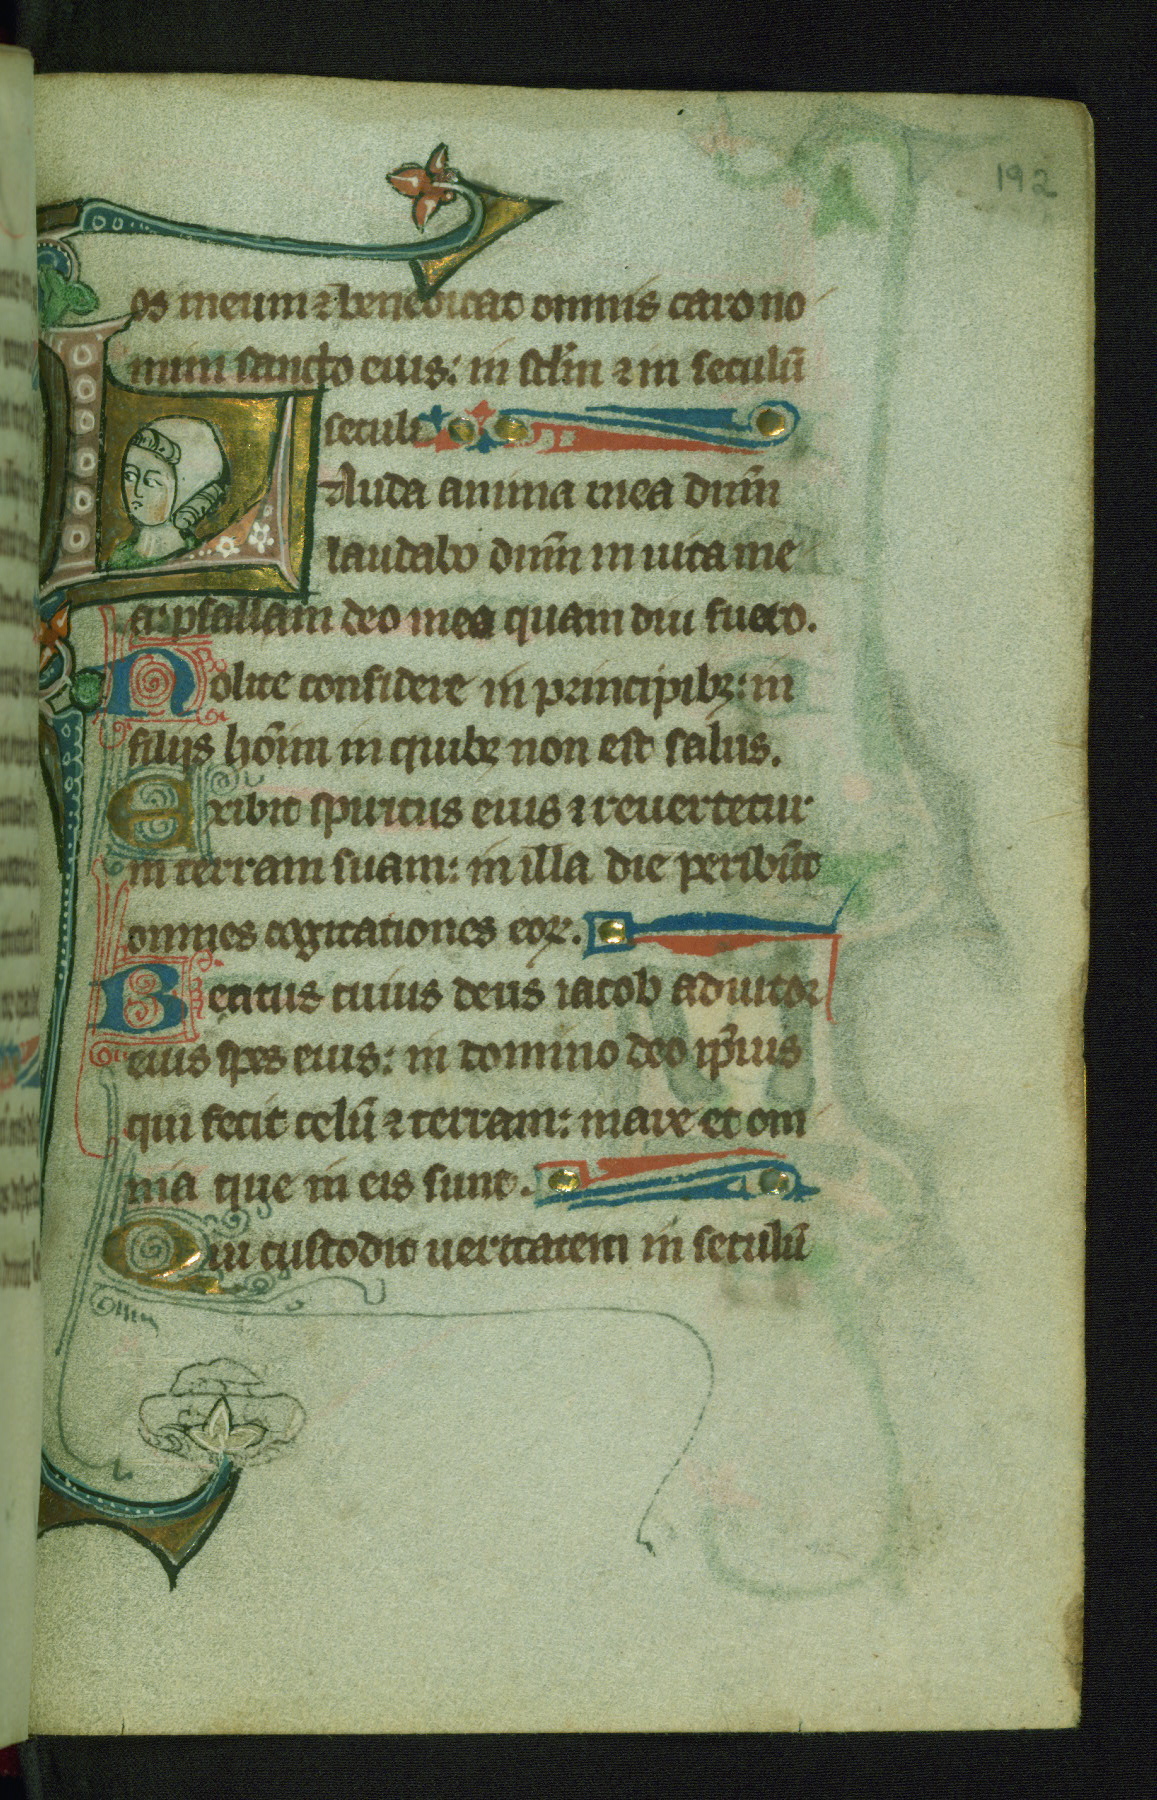 192
os meum ⁊ benedicat omnis caro no
mini sancto eius: in sc̄lm ⁊ in seculū
seculi
Lauda anima mea dnm̄
laudabo dnm̄ in uita me
a: psallam deo meo quam diu fuero.
Nolite confidere in principibꝫ: in
filijs hoīm in quibꝫ non est salus.
Exibit spiritus eius ⁊ reuertetur
in terram suam: in illa die peribūt
omnes cogitationes eoꝝ.
Beatus cuius deus iacob adiutor
eius spes eius: in domino deo ip̄ius
qui fecit celū ⁊ terram: mare et om
nia que in eis sunt.
Qui custodit ueritatem in seculū